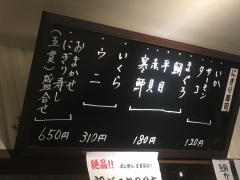 にぎり寿司
いか
サーモン
タコ
120円
まぐろ
鯛
平目
赤貝
寒鰤
180円
いくら
ウニ
310円
おまかせ
にぎり寿し
(五貫)盛合せ
650円
絶品!!